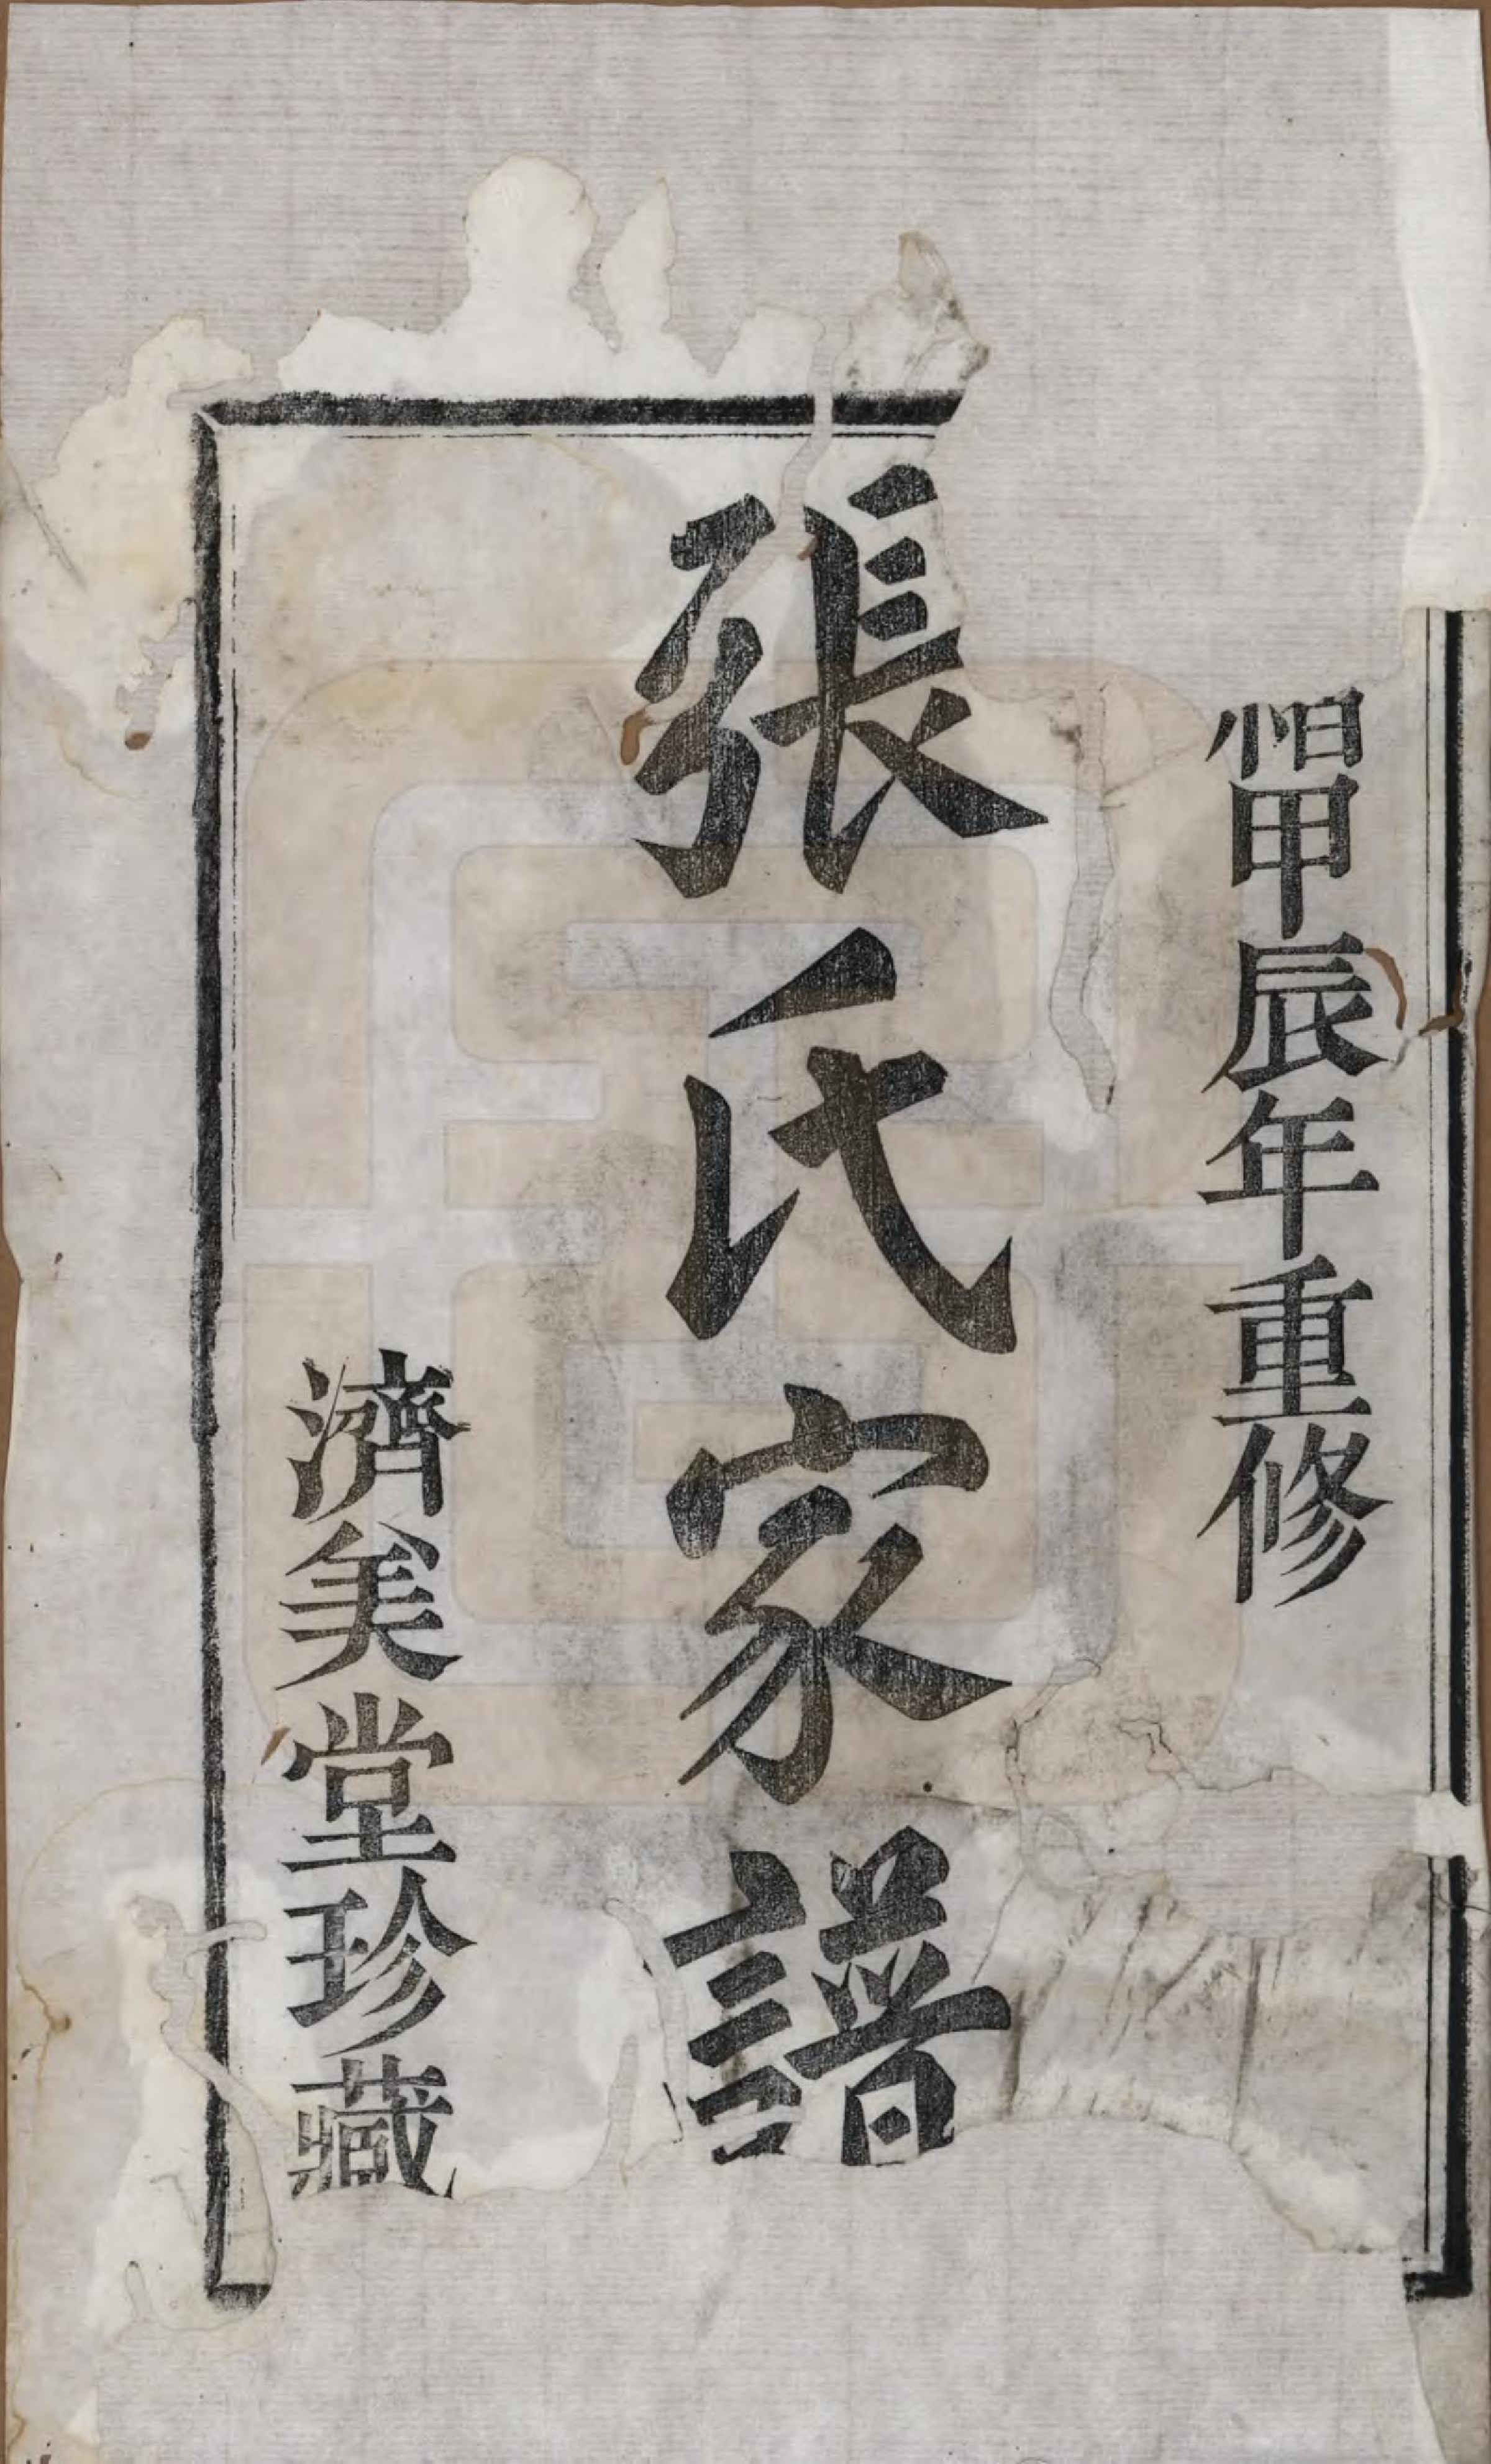 甲辰年重修
張氏家譜
濟美堂珍藏